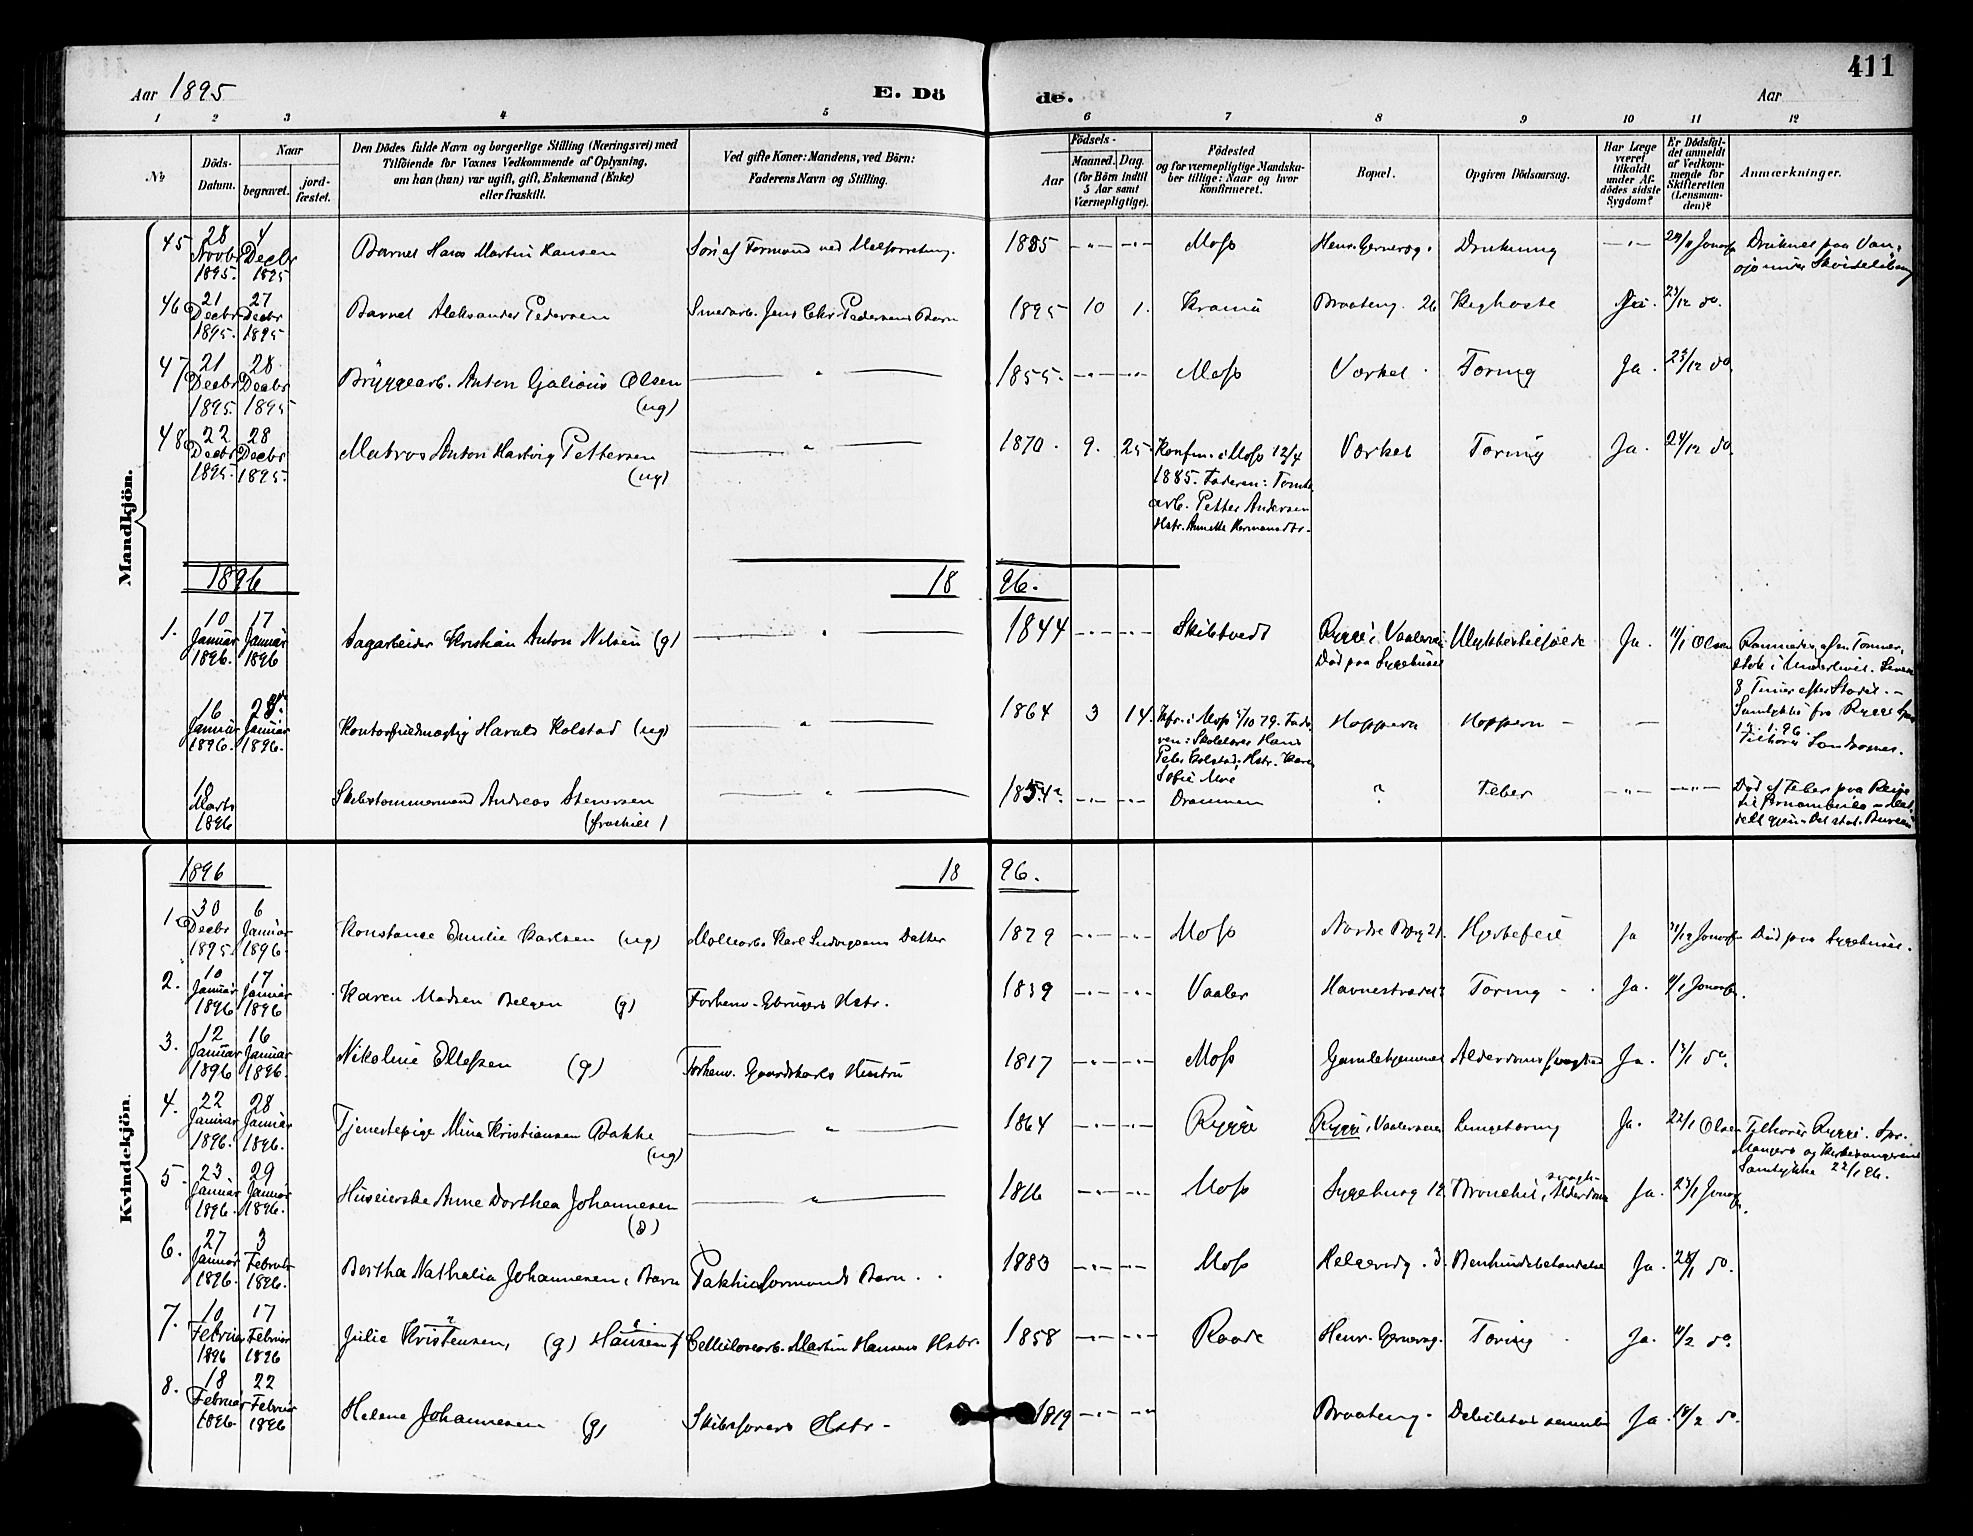 411
Aar 1895 E. Dö de. Aar
1 2 3 4 5 6 7 8 9 10 11 12
№
Döds-Datum.
Naar
begravet.
jord-fæstet.
Den Dödes fulde Navn og borgerlige Stilling (Næringsvei) med
Tilföiende for Voxnes Vedkommende af Oplysning,
om han (hun) var ugift, gift, Enkemand (Enke)
eller fraskilt.
Ved gifte Koner: Mandens, ved Börn:
Faderens Navn og Stilling.
Födsels-
Aar
Maaned.
Dag.
(for Börn indtil
5 Aar samt
Værnepligtige).
Födested
og for værnepligtige Mandska-
ber tillige: Naar og hvor
konfirmeret.
Bopæl.
Opgiven Dödsaarsag.
Har Læge
været
tilkaldt
under Af-
dödes sidste
Sygdom?
Er Dödsfal-
det anmeldt
af Vedkom-
mende for
Skifteretten
(Lensman-
den)?
Anmærkninger.
Mandkjön.
45 28 Novbr 1895. 4 Decbr 1895 Barnet Hans Martin Hansen Sön af Formand ved 1885 Moss Henr. Gernersg. Drukning Druknet paa Van-
46 21 Decbr 1895. 27 Decbr 1895 Barnet Aleksander Pedersen Smedarb. Jens Chr. Pedersens Barn 1895 10 1. Krania Braateng. 26 Kighoste Ja. 23/12 do.
47 21 Decbr 1895. 28 Decbr 1895 Bryggearb. Anton Galious Olsen (ug) 1855. Moss Værket. Tæring Ja. 23/12 do
48 22 Decbr 1895. 28 Decbr 1895. Matros Anton Hartvig Pettersen (ug) 1870. 9. 25. Konfm. i Moss 12/4
1885. Faderen: Tomte
arb. Petter Andersen
Hstr. Annette Hermansdtr. Værket Tæring Ja. 24/12 do
1896 18 96.
1. 10 Januar 1896. 17 Januar 1896 Sagarbeider Kristian Anton Nilsen (g) 1844 Skibtvedt Rygge, Vaalerveien
Död paa Sygehuset Ulykkestilfælde Ja. 11/1 Olsen Rammedes af en Tømmer-
stok i Underlivet. Levede
8 Timer efter Stödet. –
16 Januar 1896. 28. Januar 1896. Kontorfuldmægtig Harald Kolstad (ug) 1864 3 14. Kfr. i Moss 5/10 79. Fade-
ren: Skolelærer Hans
Peter Kolstad, Hstr. Karen
Sofie Moe Hoppern Hoppern Samtykke fra Rygge Spr.
17.1.96.
Tilhörer Landsognet.
18 Marts 1896 Skibstömmermand Andreas Stenersen (fraskilt) 1854? Drammen ? Feber Död af Feber paa Reise
til Pernambuco – Med-
delt gjen. Det stat. Bureau
Kvindekjön.
1896 18 96.
1. 30 Decbr 1895. 6 Januar 1896. Konstance Emilie Karlsen (ug) Möllearb. Karl Ludvigsens Datter 1879 Moss Nordre Bæg 21. Hjertefeil Ja 31/12 Död paa Sygehuset.
2. 10 Januar 1896 17 Januar 1896 Karen Madsen Belgen (g) Forhenv. Gbrugers Hstr. 1839 Vaaler Havnestrædet Tæring Ja. 11/1
3. 12 Januar 1896 16 Januar 1896. Nikoline Ellefsen (g) Forhenv. Gaardskarls Hustru 1817 Moss Gamlehjemmet Alderdomssvaghed Ja. 13/1 do.
4. 22 Januar 1896. 28 Januar 1896. Tjenestepige Mina Kristiansen Bakke (ug) 1864 Rygge Rygge, Vaalerveien Lungetæring Ja. 22/1 Olsen Tilhörer Rygge. Spr.
Mangers og Kirkevangerens
Samtykke 22/1 96.
5. 23 Januar 1896. 29 Januar 1896. Huseierske Anne Dorthea Johannesen 1816 Moss Sygehusg 12. Bronchit, Alderdoms svagh. Ja. 23/1
6. 27 Januar 1896. 3 Februar 1896. Bertha Nathalia Johannesen, Barn Pakhusformands Barn. 1883 Moss Helgerödg. 3. Benhindebetændelse Ja. 28/1 do.
7. 10 Februar 1896 17 Februar 1896 Julie Kristensen, (g) Hansen? Cellulosearb. Martin Hansens Hstr. 1858 Raade Henr. Gernersg. Tæring Ja. 11/2 do.
8. 18 Februar 1896. 22 Februar 1896 Helene Johannesen (g) Skibsförers Hstr – 1819 Braateng. Debilitas senilis Ja. 18/2 do.